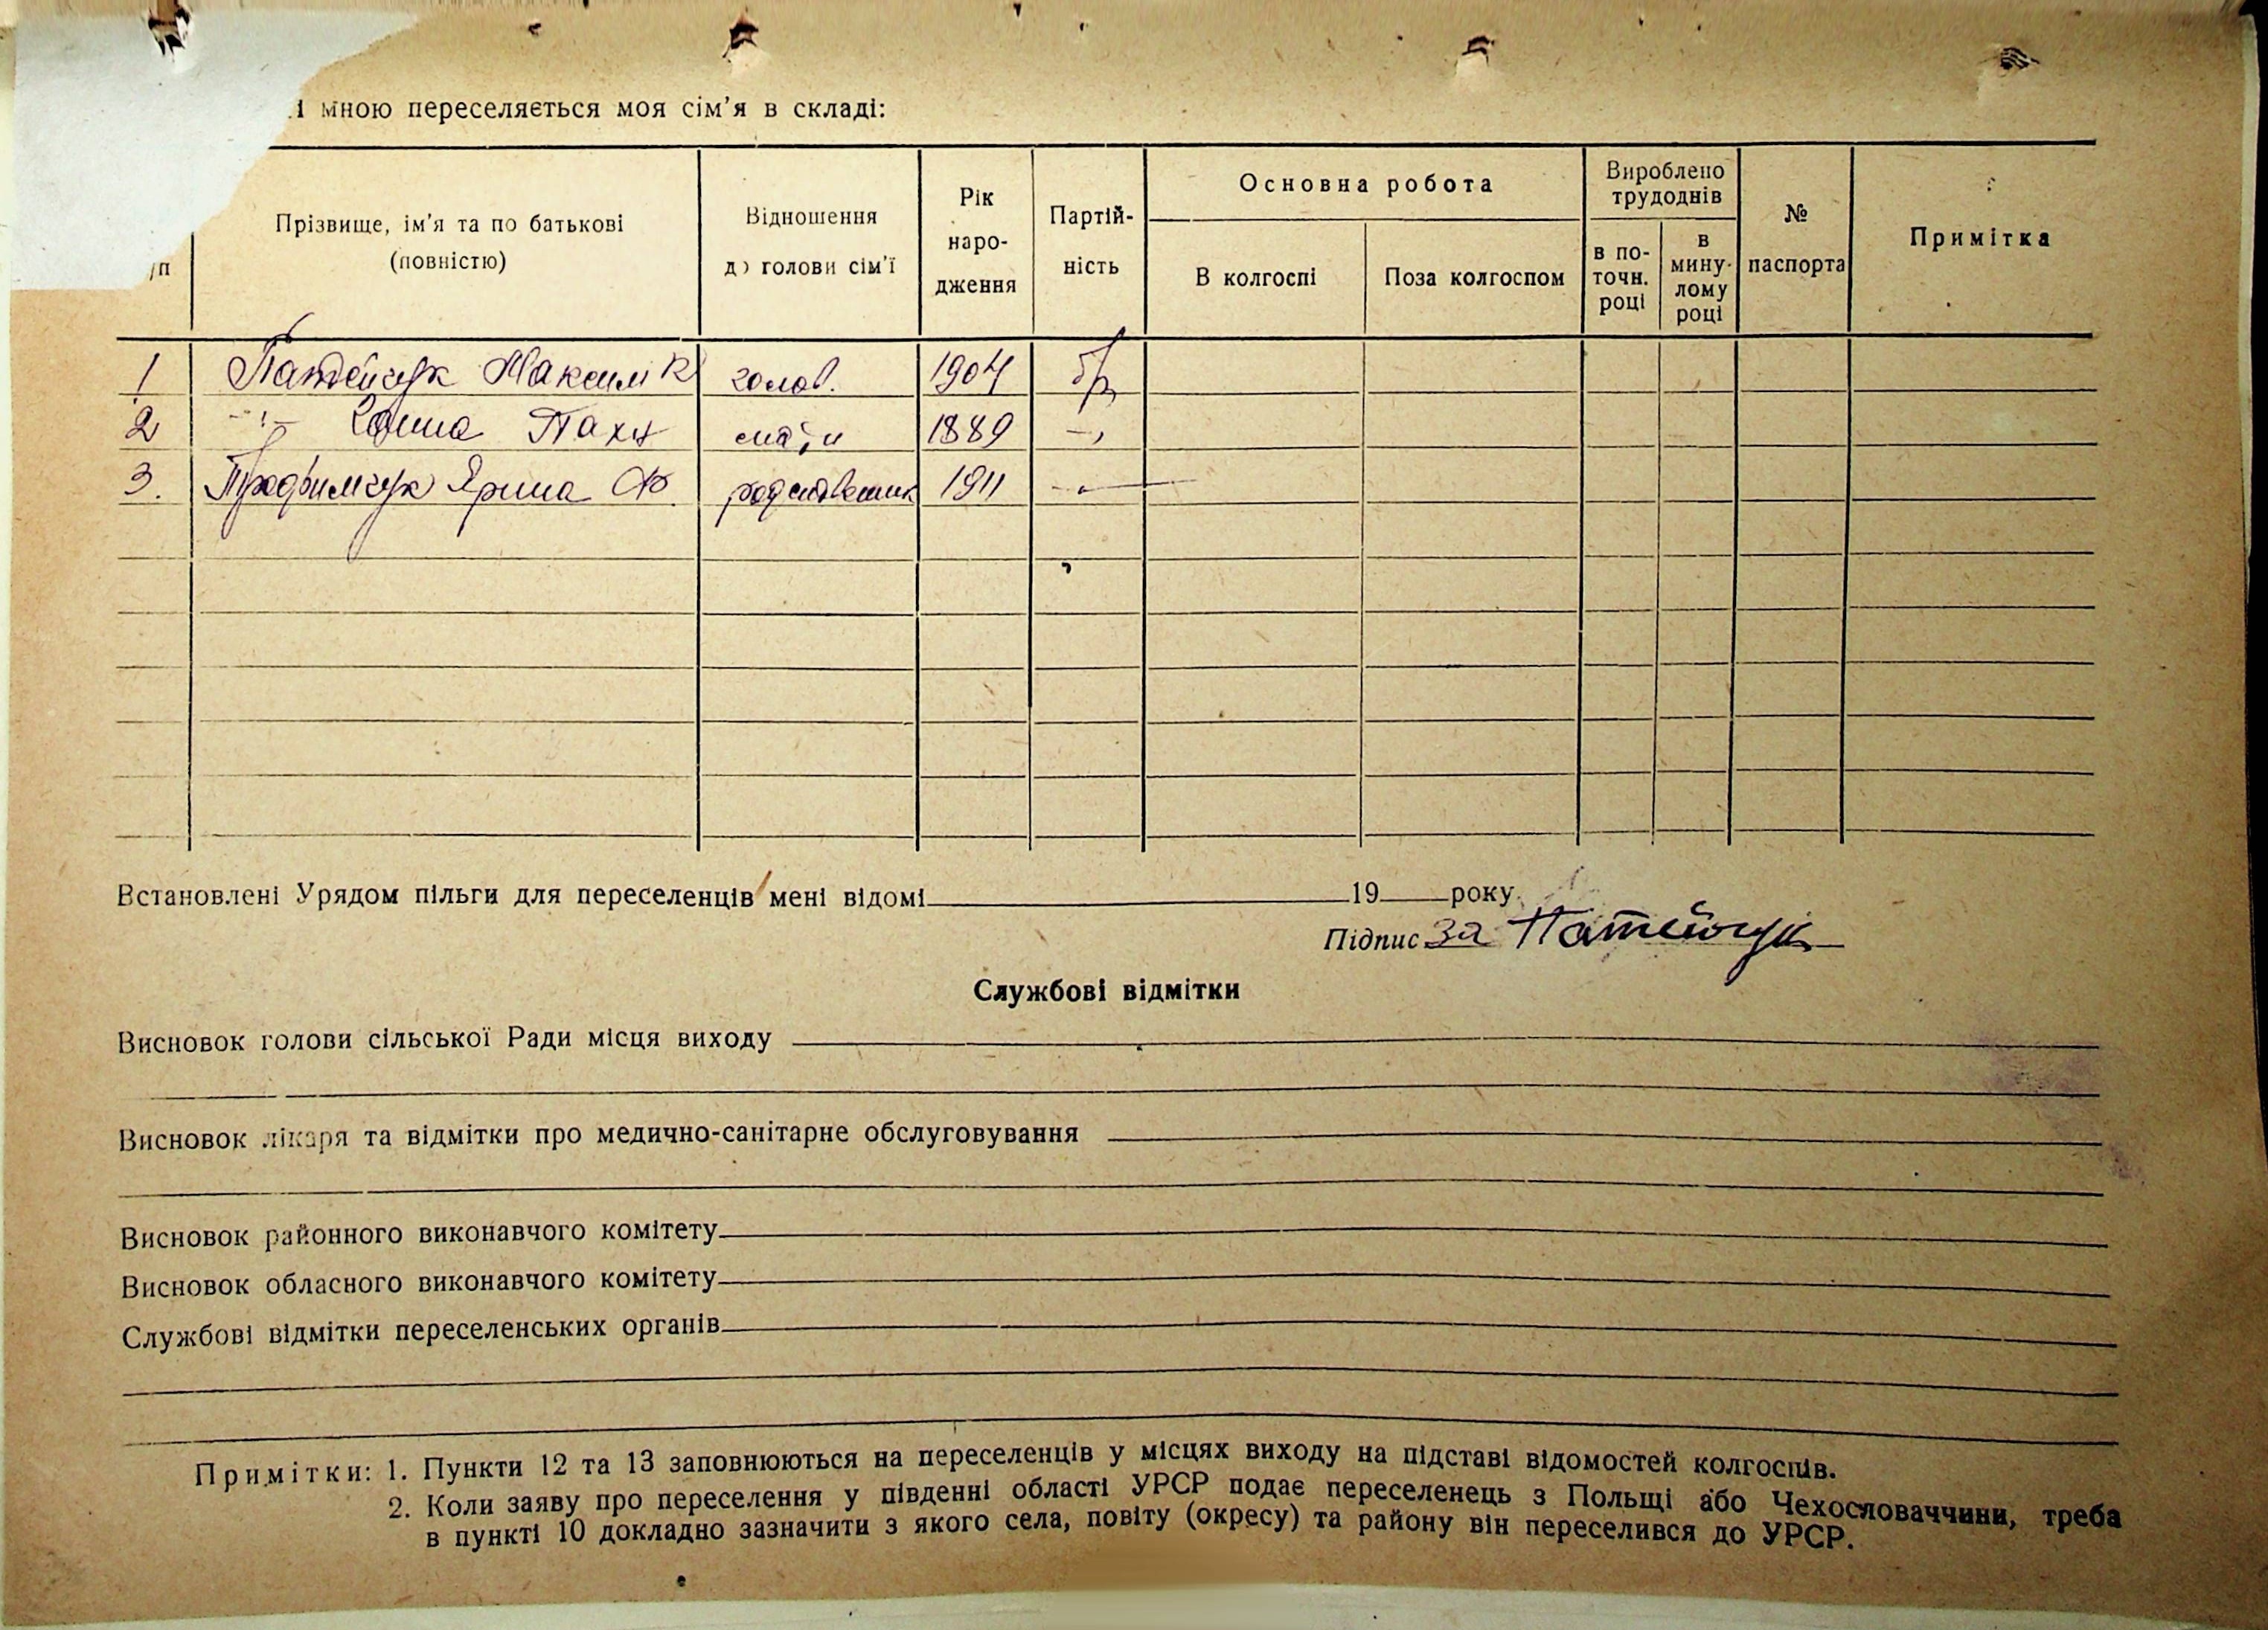 мною переселяється моя сім'я в складі:
/п
Прізвище, ім'я та по батькові
(повністю)
Відношення
до голови сім'ї
Рік
наро-
дження
Партій-
ність
Основна робота
В колгоспі
Поза колгоспом
Вироблено
трудоднів
в по-
точн.
році
в
мину-
лому
році
№
паспорта
Примітка
1 Патейчук Максим К голов. 1904 б/п
2 -"- мати 1889 -"-
3. Трофимчук Ярина Ф. родственник 1911 -"-
Встановлені Урядом пільги для переселенців мені відомі 19 року.
Підпис за Патейчук
Службові відмітки
Висновок голови сільської Ради місця виходу
Висновок лікаря та відмітки про медично-санітарне обслуговування
Висновок районного виконавчого комітету
Висновок обласного виконавчого комітету
Службові відмітки переселенських органів
Примітки: 1. Пункти 12 та 13 заповнюються на переселенців у місцях виходу на підставі відомостей колгоспів.
2. Коли заяву про переселення у південні області УРСР подає переселенець з Польщі або Чехословаччини, треба
в пункті 10 докладно зазначити з якого села, повіту (окресу) та району він переселився до УРСР.